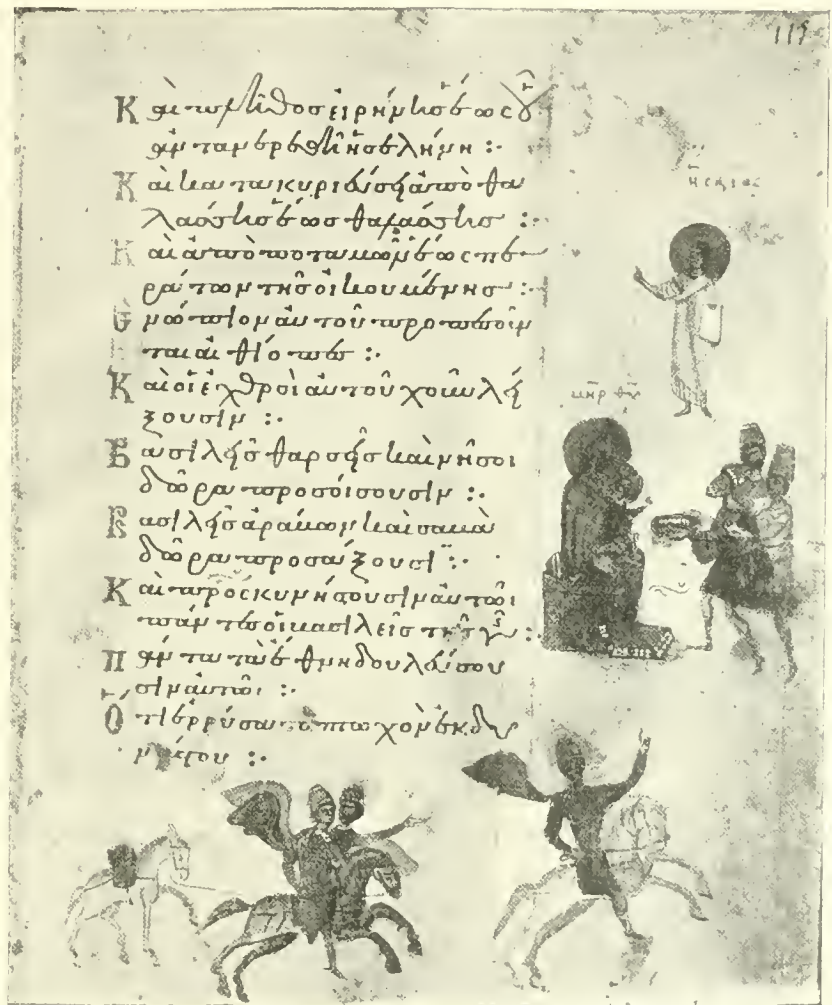 119
Καὶ πλῆθος εἰρήνης ἕως οὗ
ἀντανερεθῆ ἡ σελήνη :·
Καὶ κατακυριεύσει ἀπὸ θα
λάσσης ἕως θαλάσσης :·
Καὶ ἀπὸ ποταμῶν ἕως πε
ράτων τῆς οἰκουμένης :·
Ἐνώπιον αὐτοῦ προπεσοῦν
ται αἰθίοπες :·
Καὶ οἱ ἐχθροὶ αὐτοῦ χοῦν λεί
ξουσιν :·
Βασιλεῖς θαρσεῖς καὶ νῆσοι
δῶρα προσοίσουσιν :·
Βασιλεῖς ἀράβων καὶ σαβὰ
δῶρα προσάξουσι :·
Καὶ προσκυνήσουσιν αὐτῶι
πάντες οἱ βασιλεῖς τῆς γῆς :
Πάντα τὰ ἔθνη δουλεύσου
σιν αὐτῶι :·
Ὅτι ἐρρύσατο πτωχὸν ἐκ δυ
νάστου :·
ΗCΑΙΑC
ΜΗΡ ΘΥ